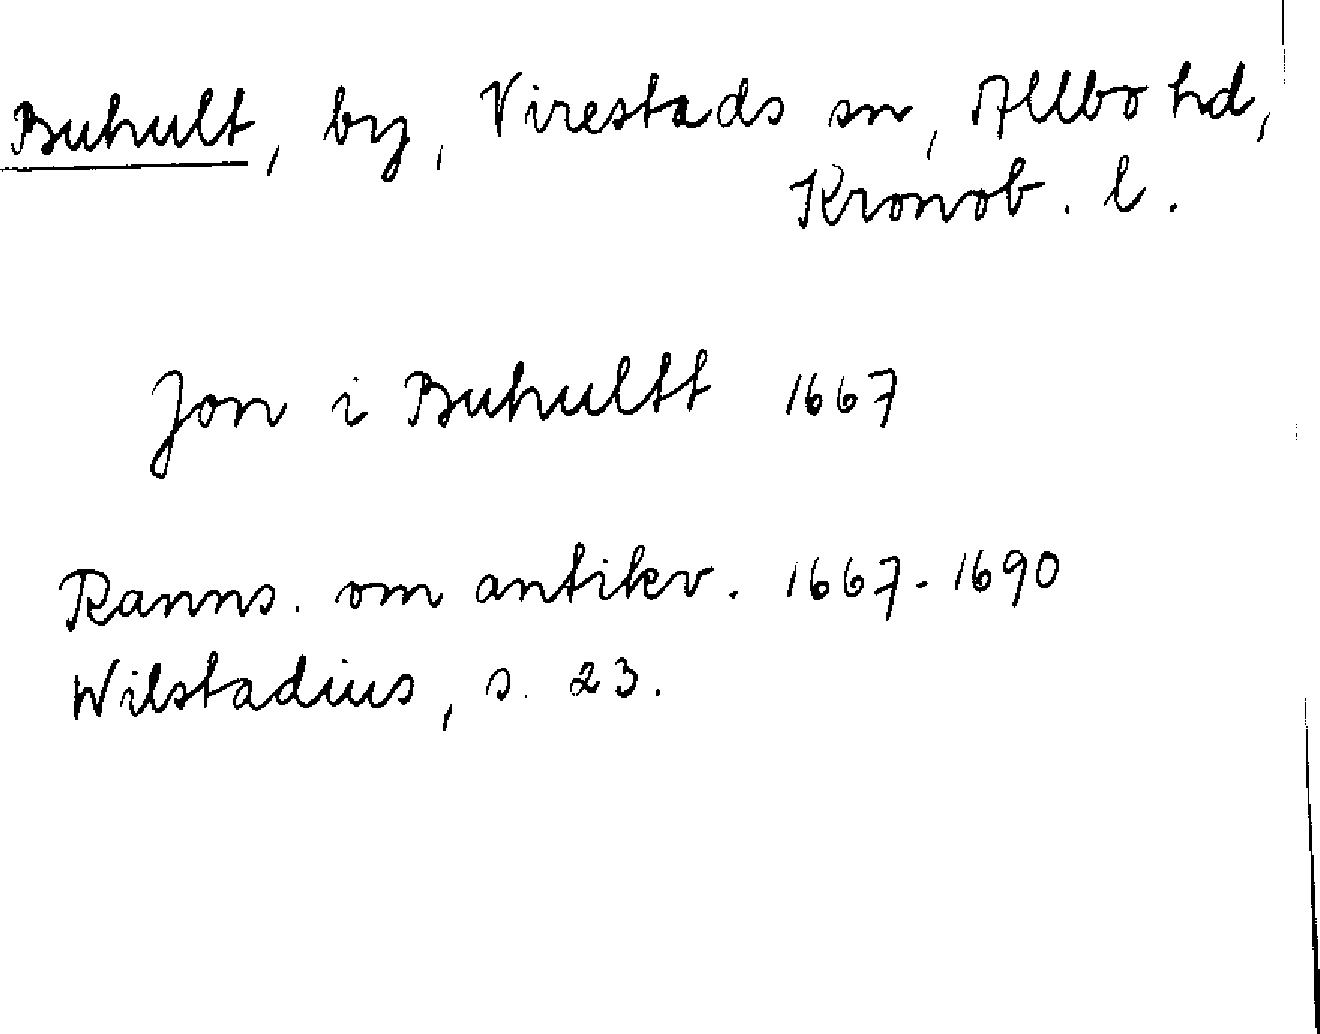 Buhult, by, Virestads sn, Allbo hd,
Kronob. l.
Jon i Buhultt 1667
Ranns. om antikv. 1667-1690
Wilstadius, s. 23.